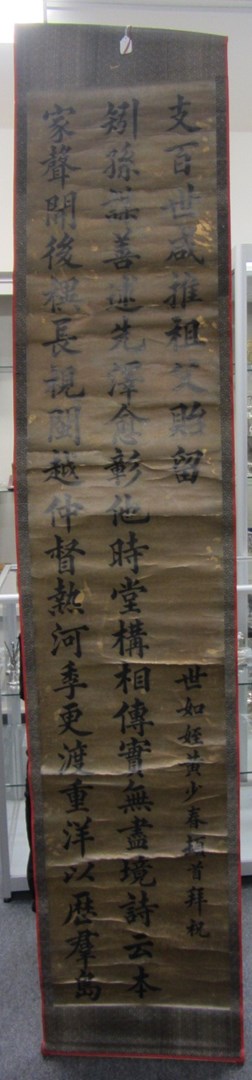 家聲開後禩長視閩越仲督熱河季更渡重洋以歷羣島
矧孫謀善述先澤愈彰他時堂構相傳實無盡境詩云本
支百世咸推祖父貽留
世如姪黃少春頓首拜祝